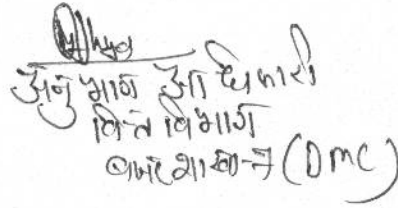 अनुभाग अधिकारी
वित्त विभाग
बजट शाखा-7 (DMC)